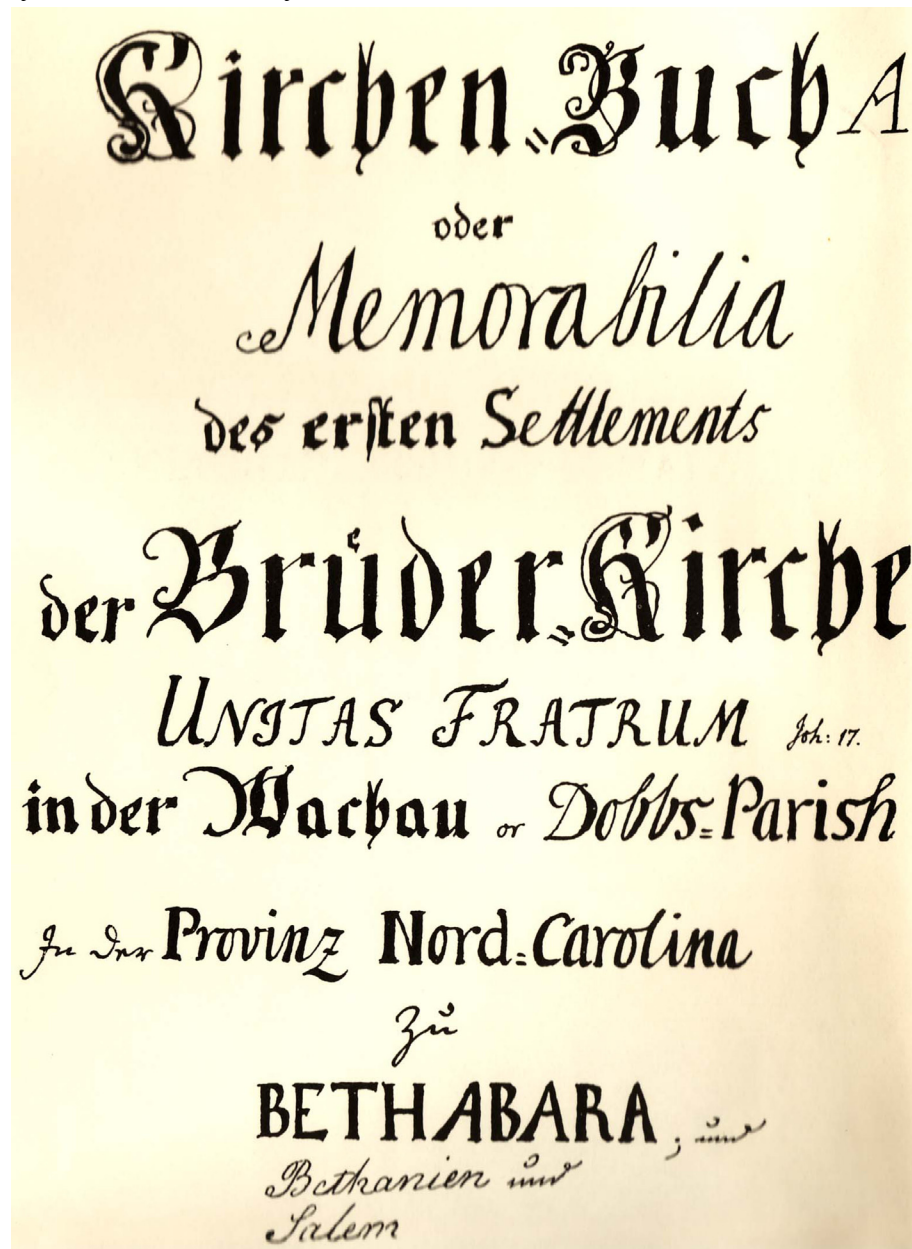 Kirchen=Buch A
oder
Memorabilia
des ersten Settlements
der Brüder=Kirche
UNITAS FRATRUM Joh: 17.
in der Wachau or Dobbs=Parish
In der Provinz Nord=Carolina
zu
BETHABARA; und
Bethanien und
Salem